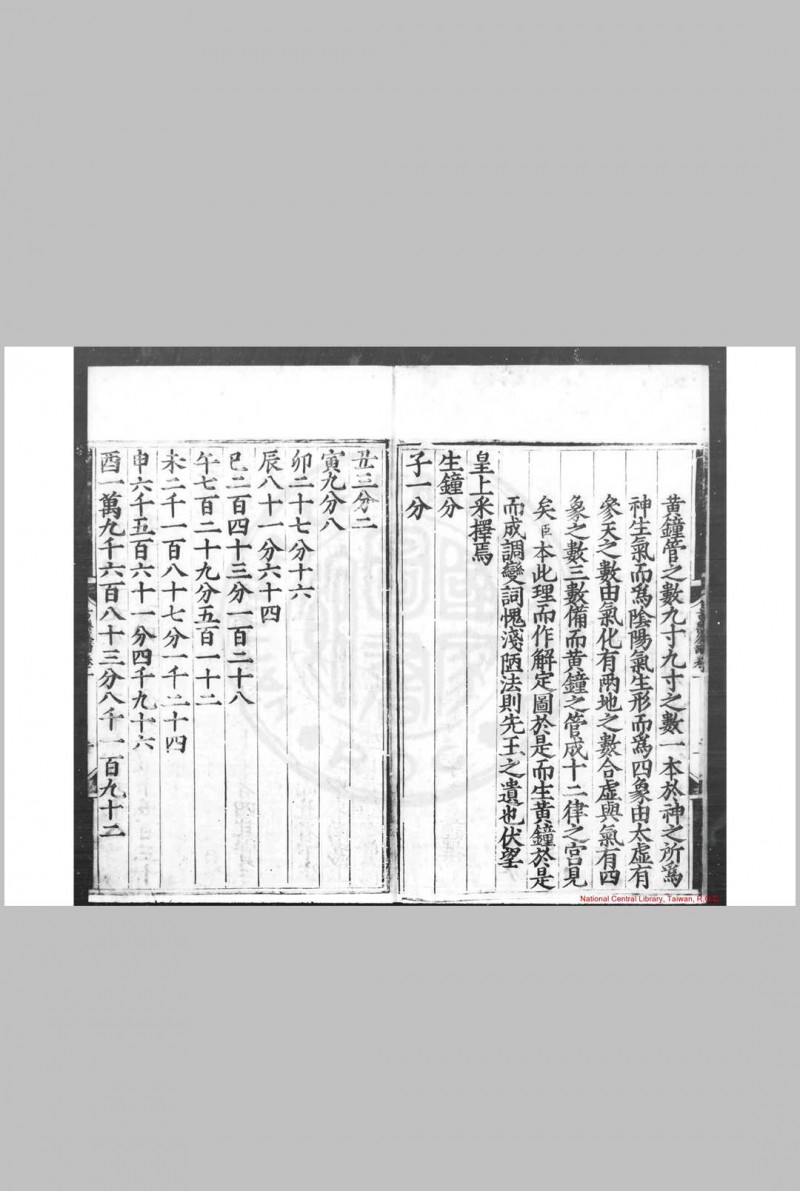 黃鐘管之數九寸九寸之數一本於神之所爲
神生氣而爲陰陽氣生形而爲四象由太虛有
參天之數由氣化有兩地之數合虛與氣有四
象之數三數備而黃鐘之管成十二律之宮見
矣臣本此理而作解定圖於是而生黃鐘於是
而成調變詞愧淺陋法則先王之遺也伏望
皇上采擇焉
生鐘分
子一分
丑三分二
寅九分八
卯二十七分十六
辰八十一分六十四
巳二百四十三分一百二十八
午七百二十九分五百一十二
未二千一百八十七分一千二十四
申六千五百六十一分四千九十六
酉一萬九千六百八十三分八千一百九十二
National Central Library, Taiwan, R.O.C.